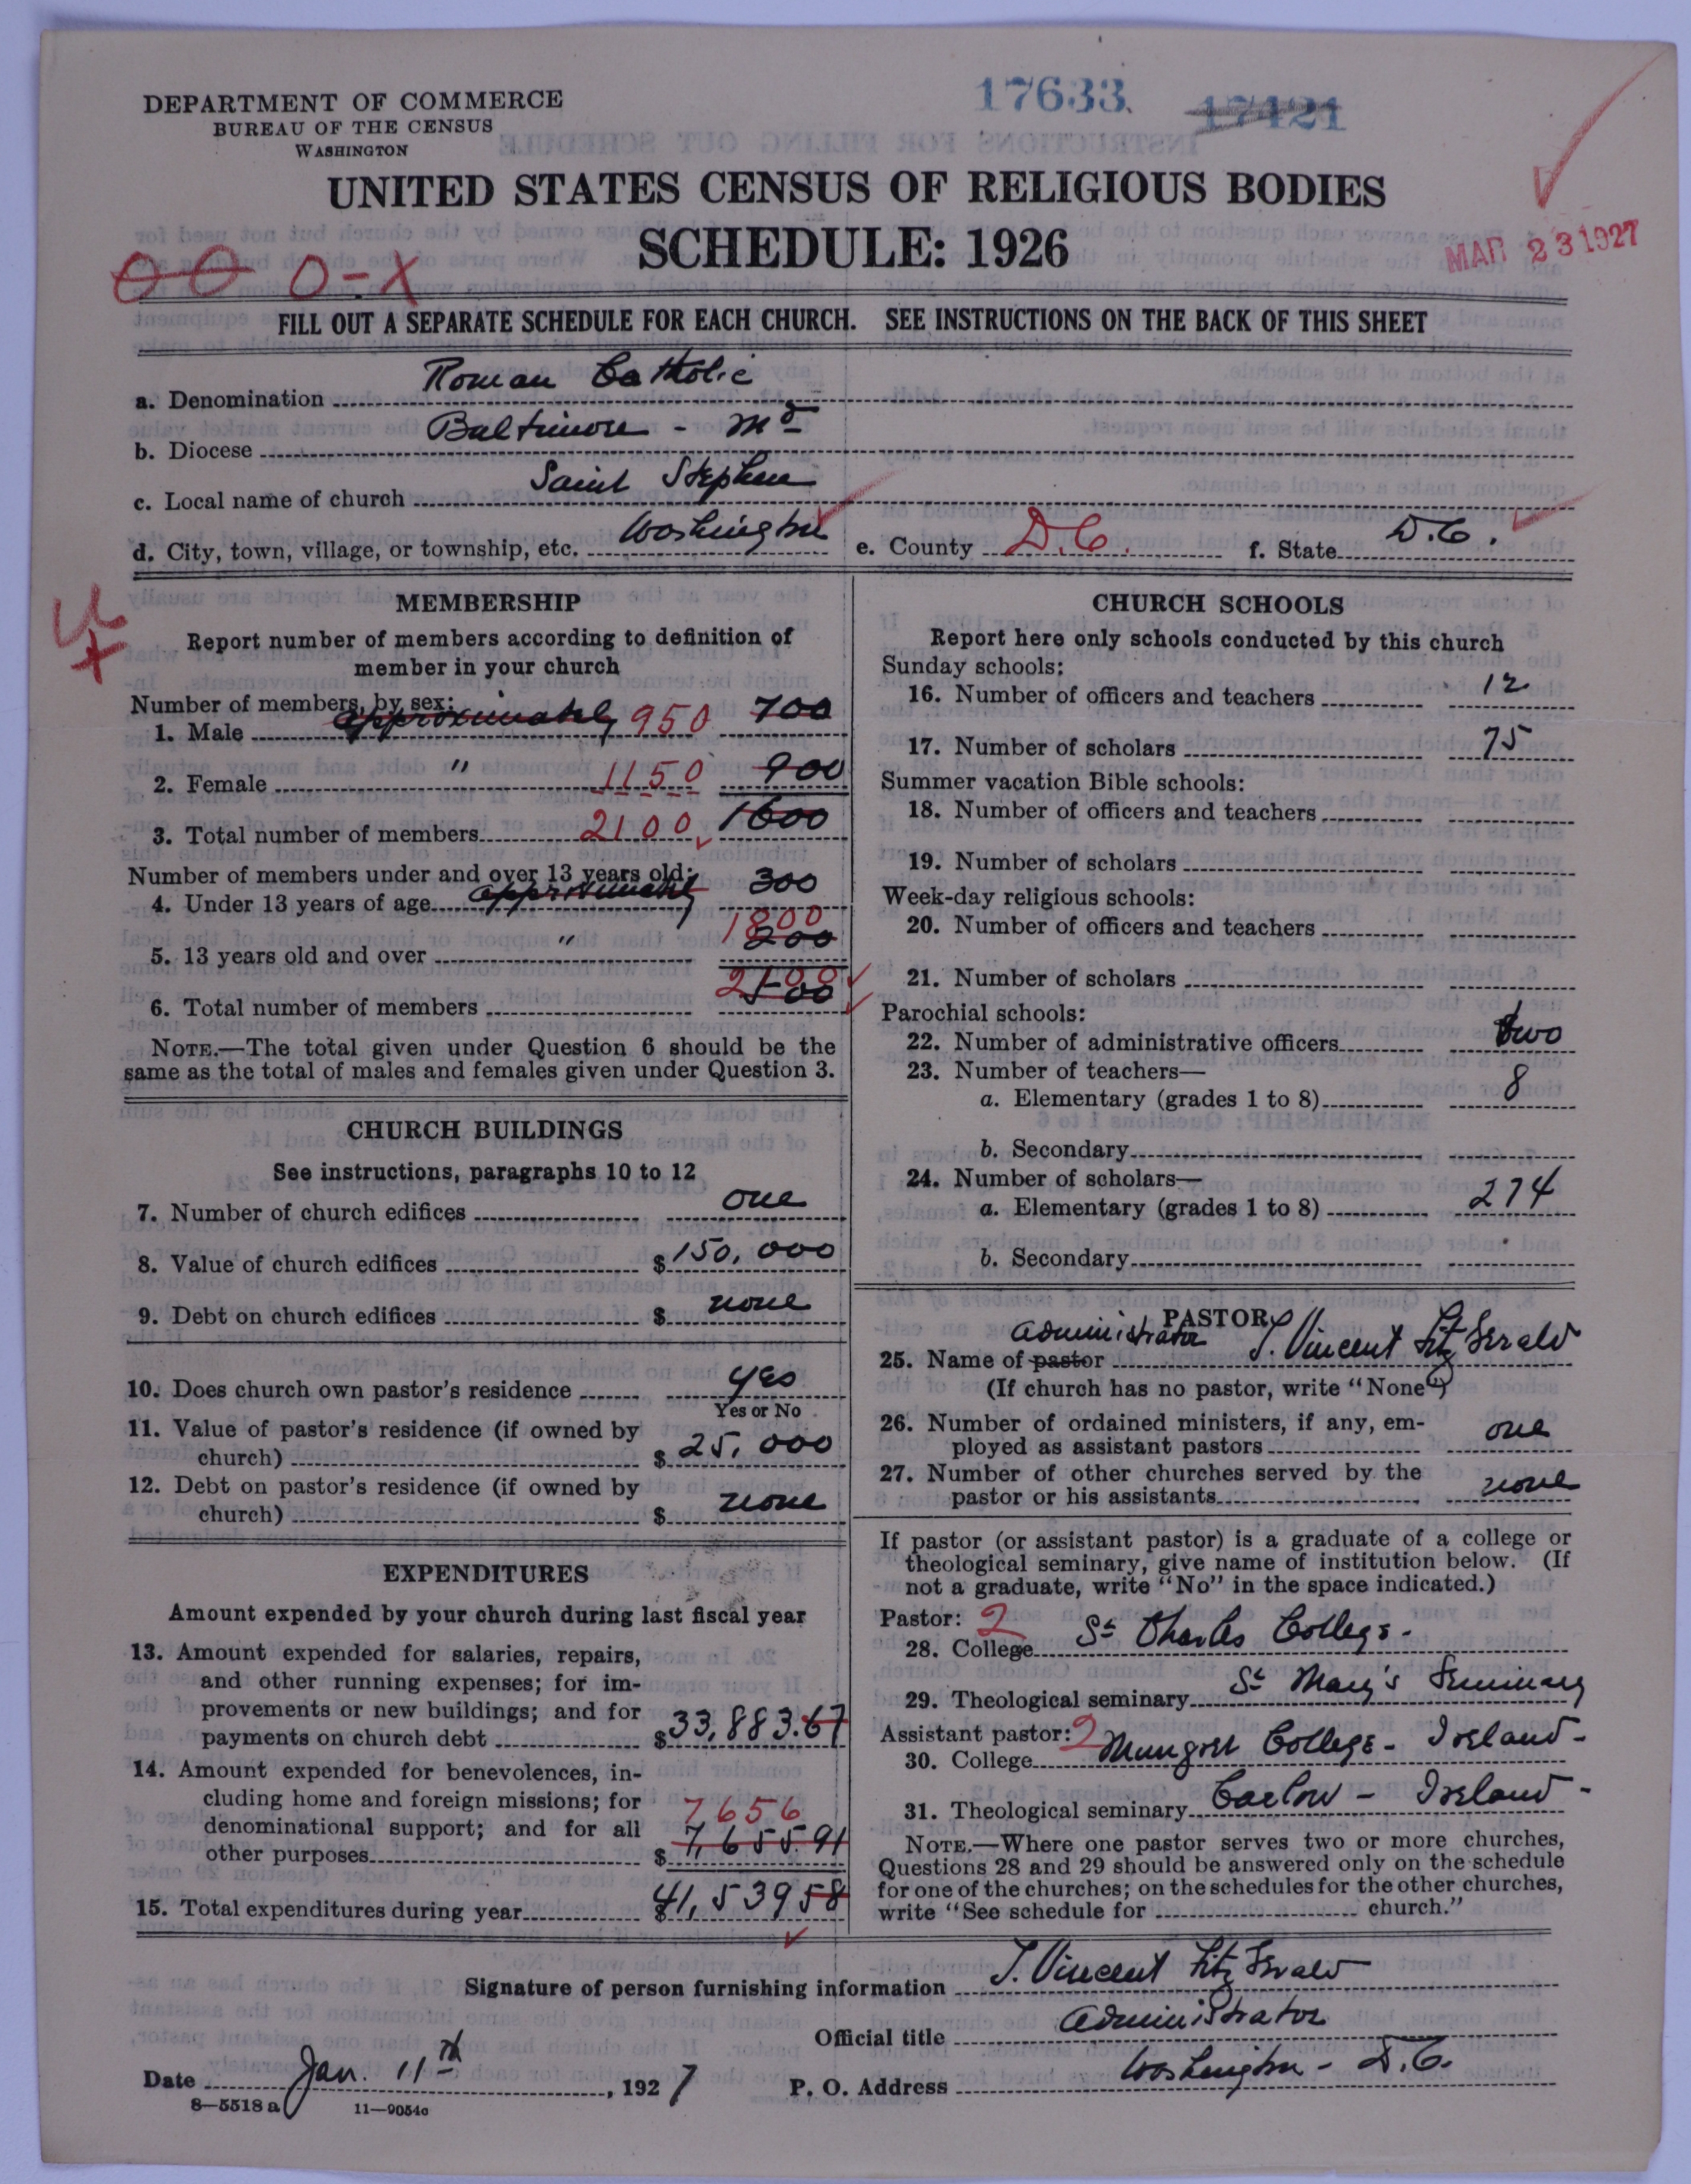 DEPARTMENT OF COMMERCE
BUREAU OF THE CENSUS
WASHINGTON
17633
17421
UNITED STATES CENSUS OF RELIGIOUS BODIES
SCHEDULE: 1926
MAR 23 1927
O-X
FILL OUT A SEPARATE SCHEDULE FOR EACH CHURCH. SEE INSTRUCTIONS ON THE BACK OF THIS SHEET
a. Denomination Roman Catholic
b. Diocese Baltimore - Md
c. Local name of church Saint Stephen
d. City, town, village, or township, etc. Washington e. County D.C. f. State D.C.
MEMBERSHIP
Report number of members according to definition of
member in your church
Number of members, by sex:
1. Male approximately 950 700
2. Female " 1150 900
3. Total number of members 2100 1600
Number of members under and over 13 years old:
4. Under 13 years of age approximately 300
5. 13 years old and over " 1800 200
6. Total number of members 2100 500
NOTE.—The total given under Question 6 should be the
same as the total of males and females given under Question 3.
CHURCH BUILDINGS
See instructions, paragraphs 10 to 12
7. Number of church edifices one
8. Value of church edifices $150,000
9. Debt on church edifices $ none
10. Does church own pastor's residence yes
Yes or No
11. Value of pastor's residence (if owned by
church) $25,000
12. Debt on pastor's residence (if owned by
church) $ none
EXPENDITURES
Amount expended by your church during last fiscal year
13. Amount expended for salaries, repairs,
and other running expenses; for im-
provements or new buildings; and for
payments on church debt $33,883.67
14. Amount expended for benevolences, in-
cluding home and foreign missions; for
denominational support; and for all 7656
other purposes $7,655.91
15. Total expenditures during year $41,539 58
CHURCH SCHOOLS
Report here only schools conducted by this church
Sunday schools:
16. Number of officers and teachers 12
17. Number of scholars 75
Summer vacation Bible schools:
18. Number of officers and teachers
19. Number of scholars
Week-day religious schools:
20. Number of officers and teachers
21. Number of scholars
Parochial schools:
22. Number of administrative officers two
23. Number of teachers—
a. Elementary (grades 1 to 8) 8
b. Secondary
24. Number of scholars—
a. Elementary (grades 1 to 8) 274
b. Secondary
PASTOR
Administrator
25. Name of pastor J. Vincent FitzGerald
(If church has no pastor, write "None")
26. Number of ordained ministers, if any, em-
ployed as assistant pastors one
27. Number of other churches served by the
pastor or his assistants none
If pastor (or assistant pastor) is a graduate of a college or
theological seminary, give name of institution below. (If
not a graduate, write "No" in the space indicated.)
Pastor: 2
28. College St Charles College.
29. Theological seminary St Mary's Seminary
Assistant pastor: 2
30. College Mungret College - Ireland -
31. Theological seminary Carlow - Ireland -
NOTE.—Where one pastor serves two or more churches,
Questions 28 and 29 should be answered only on the schedule
for one of the churches; on the schedules for the other churches,
write "See schedule for church."
Signature of person furnishing information J. Vincent FitzGerald
Official title Administrator
Date Jan. 11th, 1927 P. O. Address Washington - D.C.
8—5518 a 11—9054a